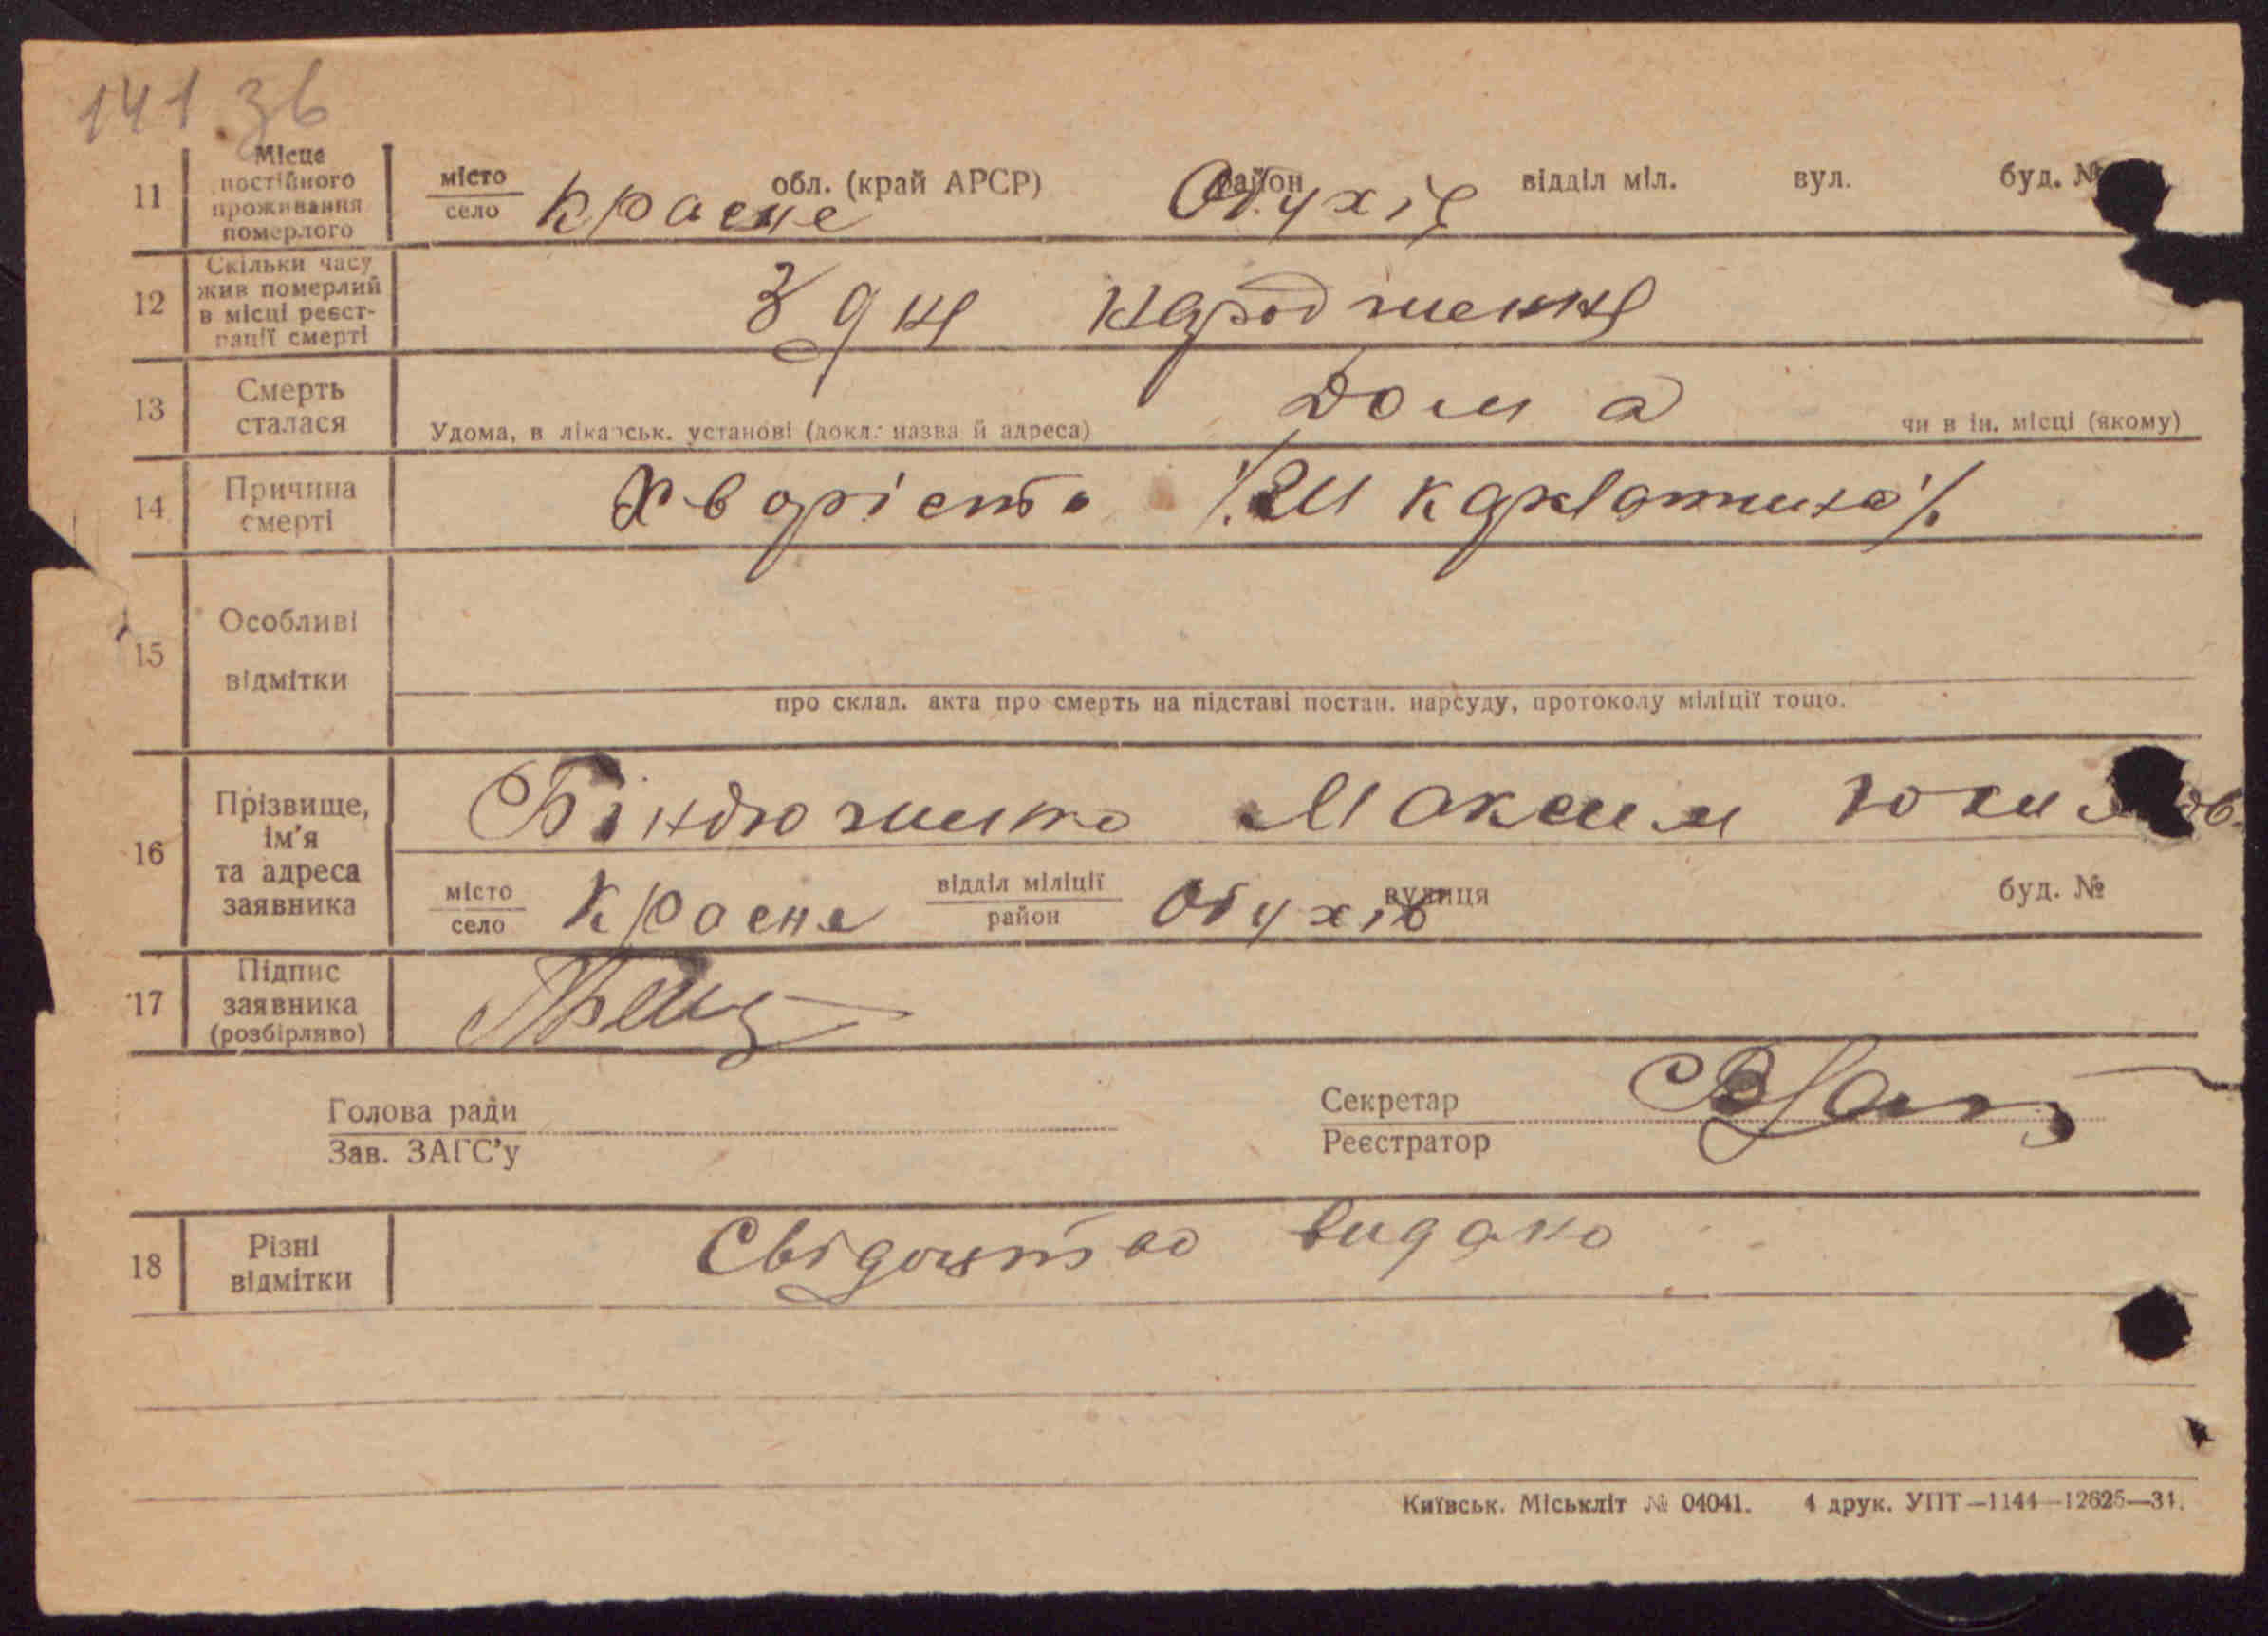 141 зв
11 Місце постійного проживання померлого місто село Красне обл. (край АРСР) район Обухів відділ міл. вул. буд. №
12 Скільки часу жив померлий в місці реєстрації смерті З дня народження
13 Смерть сталася Удома, в лікарськ. установі (докл. назва й адреса) дома чи в ін. місці (якому)
14 Причина смерті Хворість /Шкарлатина/
15 Особливі відмітки
про склад. акта про смерть на підставі постан. нарсуду, протоколу міліції тощо.
16 Прізвище, ім'я та адреса заявника Максим
місто село Красне відділ міліції район Обухів вулиця буд. №
17 Підпис заявника (розбірливо)
Голова ради Секретар
Зав. ЗАГС'у Реєстратор
18 Різні відмітки Свідоцтво видано
Київськ. Міськліт № 04041. 4 друк. УПТ—1144—12625—31.